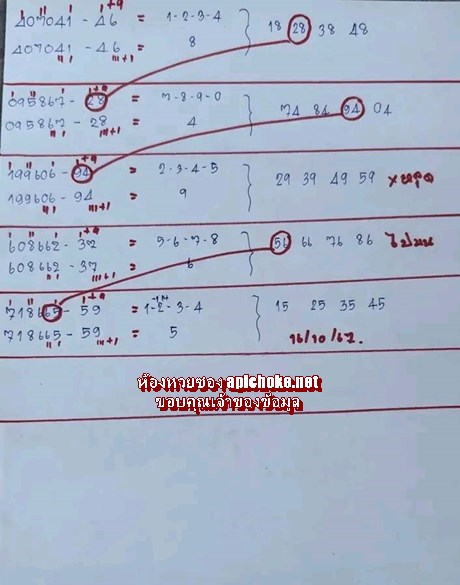 407041 - 46 = 1-2-3-4
407041 - 46 = 8
18 28 38 48
095867 - 28 = 7-8-9-0
095867 - 28 = 4
74 84 94 04
199606 - 94 = 2-3-4-5
199606 - 94 = 9
29 39 49 59 xหลุด
608662 - 37 = 5-6-7-8
608662 - 37 = 6
56 66 76 86 ไปบน
718665 - 59 = 1-2-3-4
718665 - 59 = 5
15 25 35 45
16/10/67.
ห้องหวยซอง apichoke.net
ขอบคุณเจ้าของข้อมูล